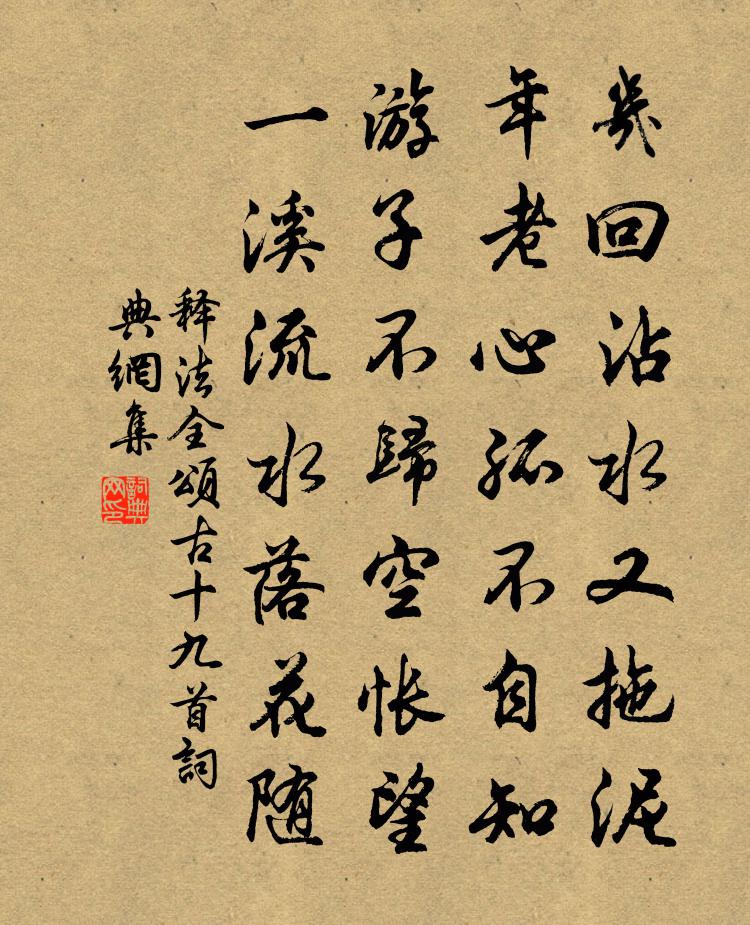 幾回沾水又拖泥
年老心孤不自知
游子不歸空悵望
一溪流水落花随
释法全頌古十九首詞
典網集
詞典网印